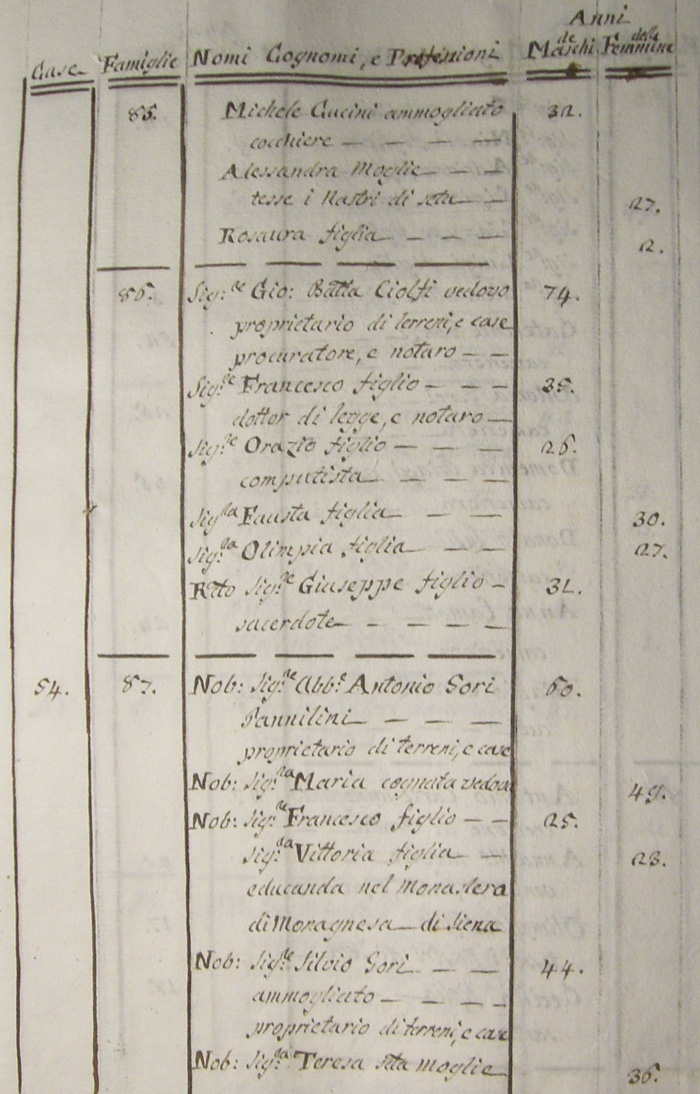 Anni
Case Famiglie Nomi Cognomi, e Professioni de Maschi delle Femmine
85. Michele Cucini ammogliato 32.
cocchiere — — —
Alessandra Moglie — —
tesse i Nastri di seta — 27.
Rosaura figlia — — — 2.
86. Sig.re Gio: Batta Ciolfi vedovo 74.
proprietario di terreni, e case
procuratore, e notaro — —
Sig.re Francesco figlio — — — 35.
dottor di legge, e notaro —
Sig.re Orazio figlio — — — 26.
computista — — —
Sig.ra Fausta figlia — — — 30.
Sig.ra Olimpia figlia — — 27.
Rdto Sig.re Giuseppe figlio — 31.
sacerdote — — — —
54. 87. Nob: Sig.re Abb.e Antonio Gori 60.
Pannilini — — —
proprietario di terreni, e case
Nob: Sig.ra Maria cognata vedova 49.
Nob: Sig.re Francesco figlio — — 25.
Sig.ra Vittoria figlia — — 23.
educanda nel Monastero
di — di Siena
Nob: Sig.re Silvio Gori — — 44.
ammogliato — — —
proprietario di terreni, e case
Nob: Sig.ra Teresa sua moglie 36.